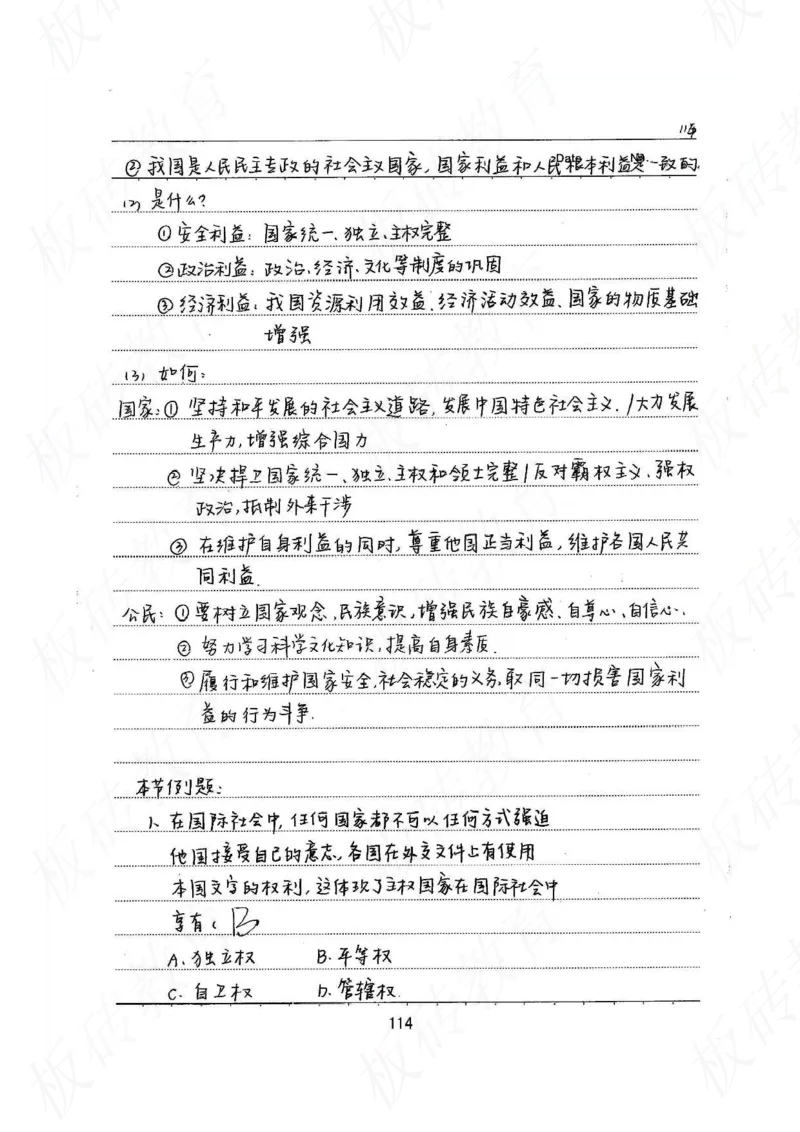 115
②我国是人民民主专政的社会主义国家,国家利益和人民根本利益是一致的.
(2)是什么?
①安全利益:国家统一、独立、主权完整
②政治利益:政治、经济、文化等制度的巩固
③经济利益:我国资源利用效益、经济活动效益、国家的物质基础
增强
(3)如何:
国家:①坚持和平发展的社会主义道路,发展中国特色社会主义./大力发展
生产力,增强综合国力
②坚决捍卫国家统一、独立、主权和领土完整/反对霸权主义、强权
政治,抵制外来干涉
③在维护自身利益的同时,尊重他国正当利益,维护各国人民共
同利益.
公民:①要树立国家观念,民族意识,增强民族自豪感、自尊心、自信心.
②努力学习科学文化知识,提高自身素质.
③履行和维护国家安全,社会稳定的义务,取同一切损害国家利
益的行为斗争.
本节例题:
1、在国际社会中,任何国家都不可以任何方式强迫
他国接受自己的意志,各国在外交文件上有使用
本国文字的权利,这体现了主权国家在国际社会中
享有( B
A.独立权 B.平等权
C.自卫权 D.管辖权.
114
板砖教育